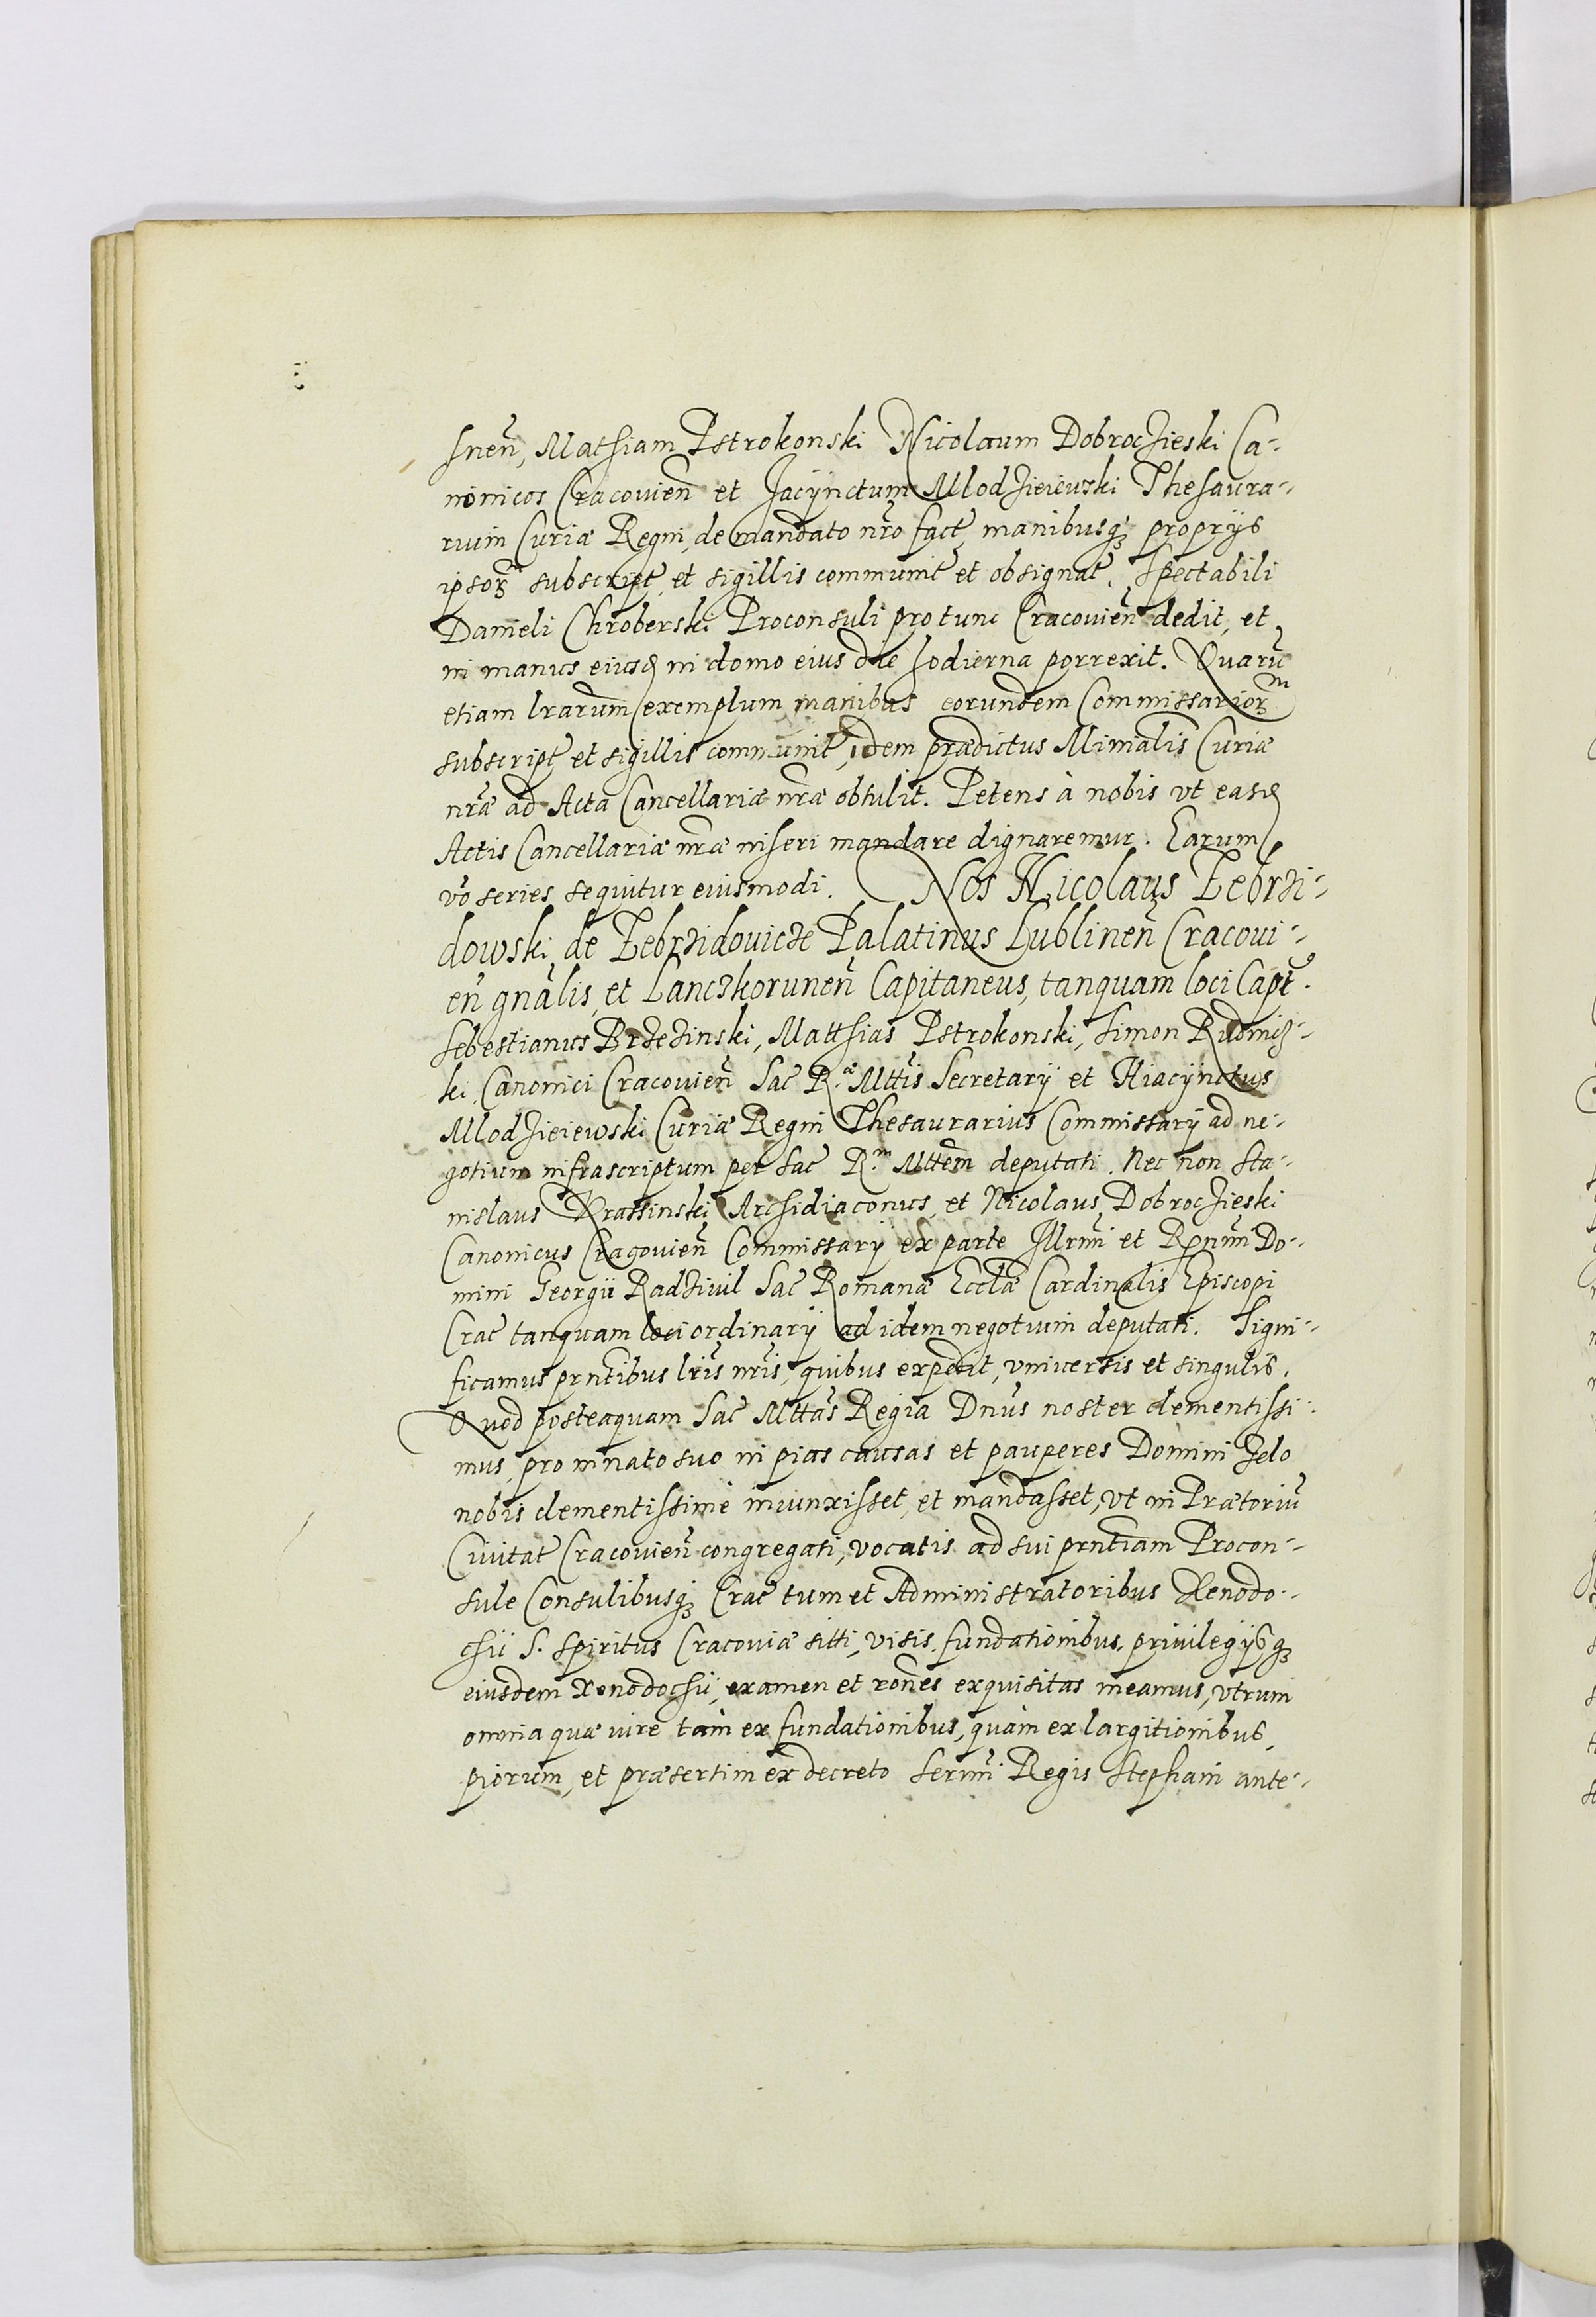 snen̄, Mathiam Pstrokonski Nicolaum Dobrocżieski Ca-
nonicos Cracouien̄ et Jacÿnctum Mlodżieiewski Thesaura-
rium Curiæ Regni, de mandato nr̄o fact̄, manibusq́ȝ proprÿs
ipsoꝝ subscript̄, et sigillis communit̄ et obsignat̄. Spectabili
Danieli Chroberski Proconsuli pro tunc Cracouien̄ dedit, et
in manus eiusꝺ in domo eius die hodierna porrexit. Quarū
etiam lrarum exemplum manibus eorundem Commissarioꝝm
subscript̄ et sigillis communit̄, idem prædictus Mīnialis Curiæ
nr̄æ ad Acta Cancellariæ nr̄æ obtulit. Petens à nobis vt easꝺ
Actis Cancellariæ nr̄æ inseri mandare dignaremur. Earum
vō series sequitur eiusmodi. Nos Nicolaus Zebrzi-
dowski de Zebrzidouicze Palatinus Lublinen̄ Cracoui-
en̄ gnālis, et Lanczkorunen̄ Capitaneus, tanquam loci Capt̄.
Sebestianus Brzezinski, Matthias Pstrokonski, Simon Rudnicz-
ki, Canonici Cracouien̄ Sac̄ R.æ Mttis Secretarÿ et Hiacÿnctus
Mlodżieiewski Curiæ Regni Thesaurarius Commissarÿ ad ne-
gotium infrascriptum per Sac̄ R.m Mttem deputati. Nec non Sta-
nislaus Krassinski Archidiaconus, et Nicolaus Dobrocżieski
Canonicus Cragouien̄ Commissarÿ ex parte Illrmi et Rnd̄mi Do-
mini Georgii Radziuil Sac̄ Romanæ Ecclæ Cardinalis Episcopi
Crac̄ tanquam loci ordinarÿ ad idem negotium deputati. Signi-
ficamus prntibus lris nris, quibus expedit, vniuersis et singulis.
Quod posteaquam Sac̄ Mttas Regia Dnūs noster clementissi-
mus, pro innato suo in pias causas et pauperes Domini zelo
nobis clementissimè iniunxisset, et mandasset, vt in Prætoriū
Ciuitat̄ Cracouien̄ congregati, vocatis ad sui prntiam Procon-
sule Consulibusq́ȝ Crac̄ tum et Administratoribus Xenodo-
chii S. Spiritus Cracouiæ siti, visis fundationibus, priuilegÿsq́ȝ
eiusdem Xenodochii, examen et rones exquisitas ineamus, vtrum
omnia quæ iure tam ex fundationibus, quàm ex largitionibus,
piorum, et præsertim ex decreto Sermi Regis Stephani ante-